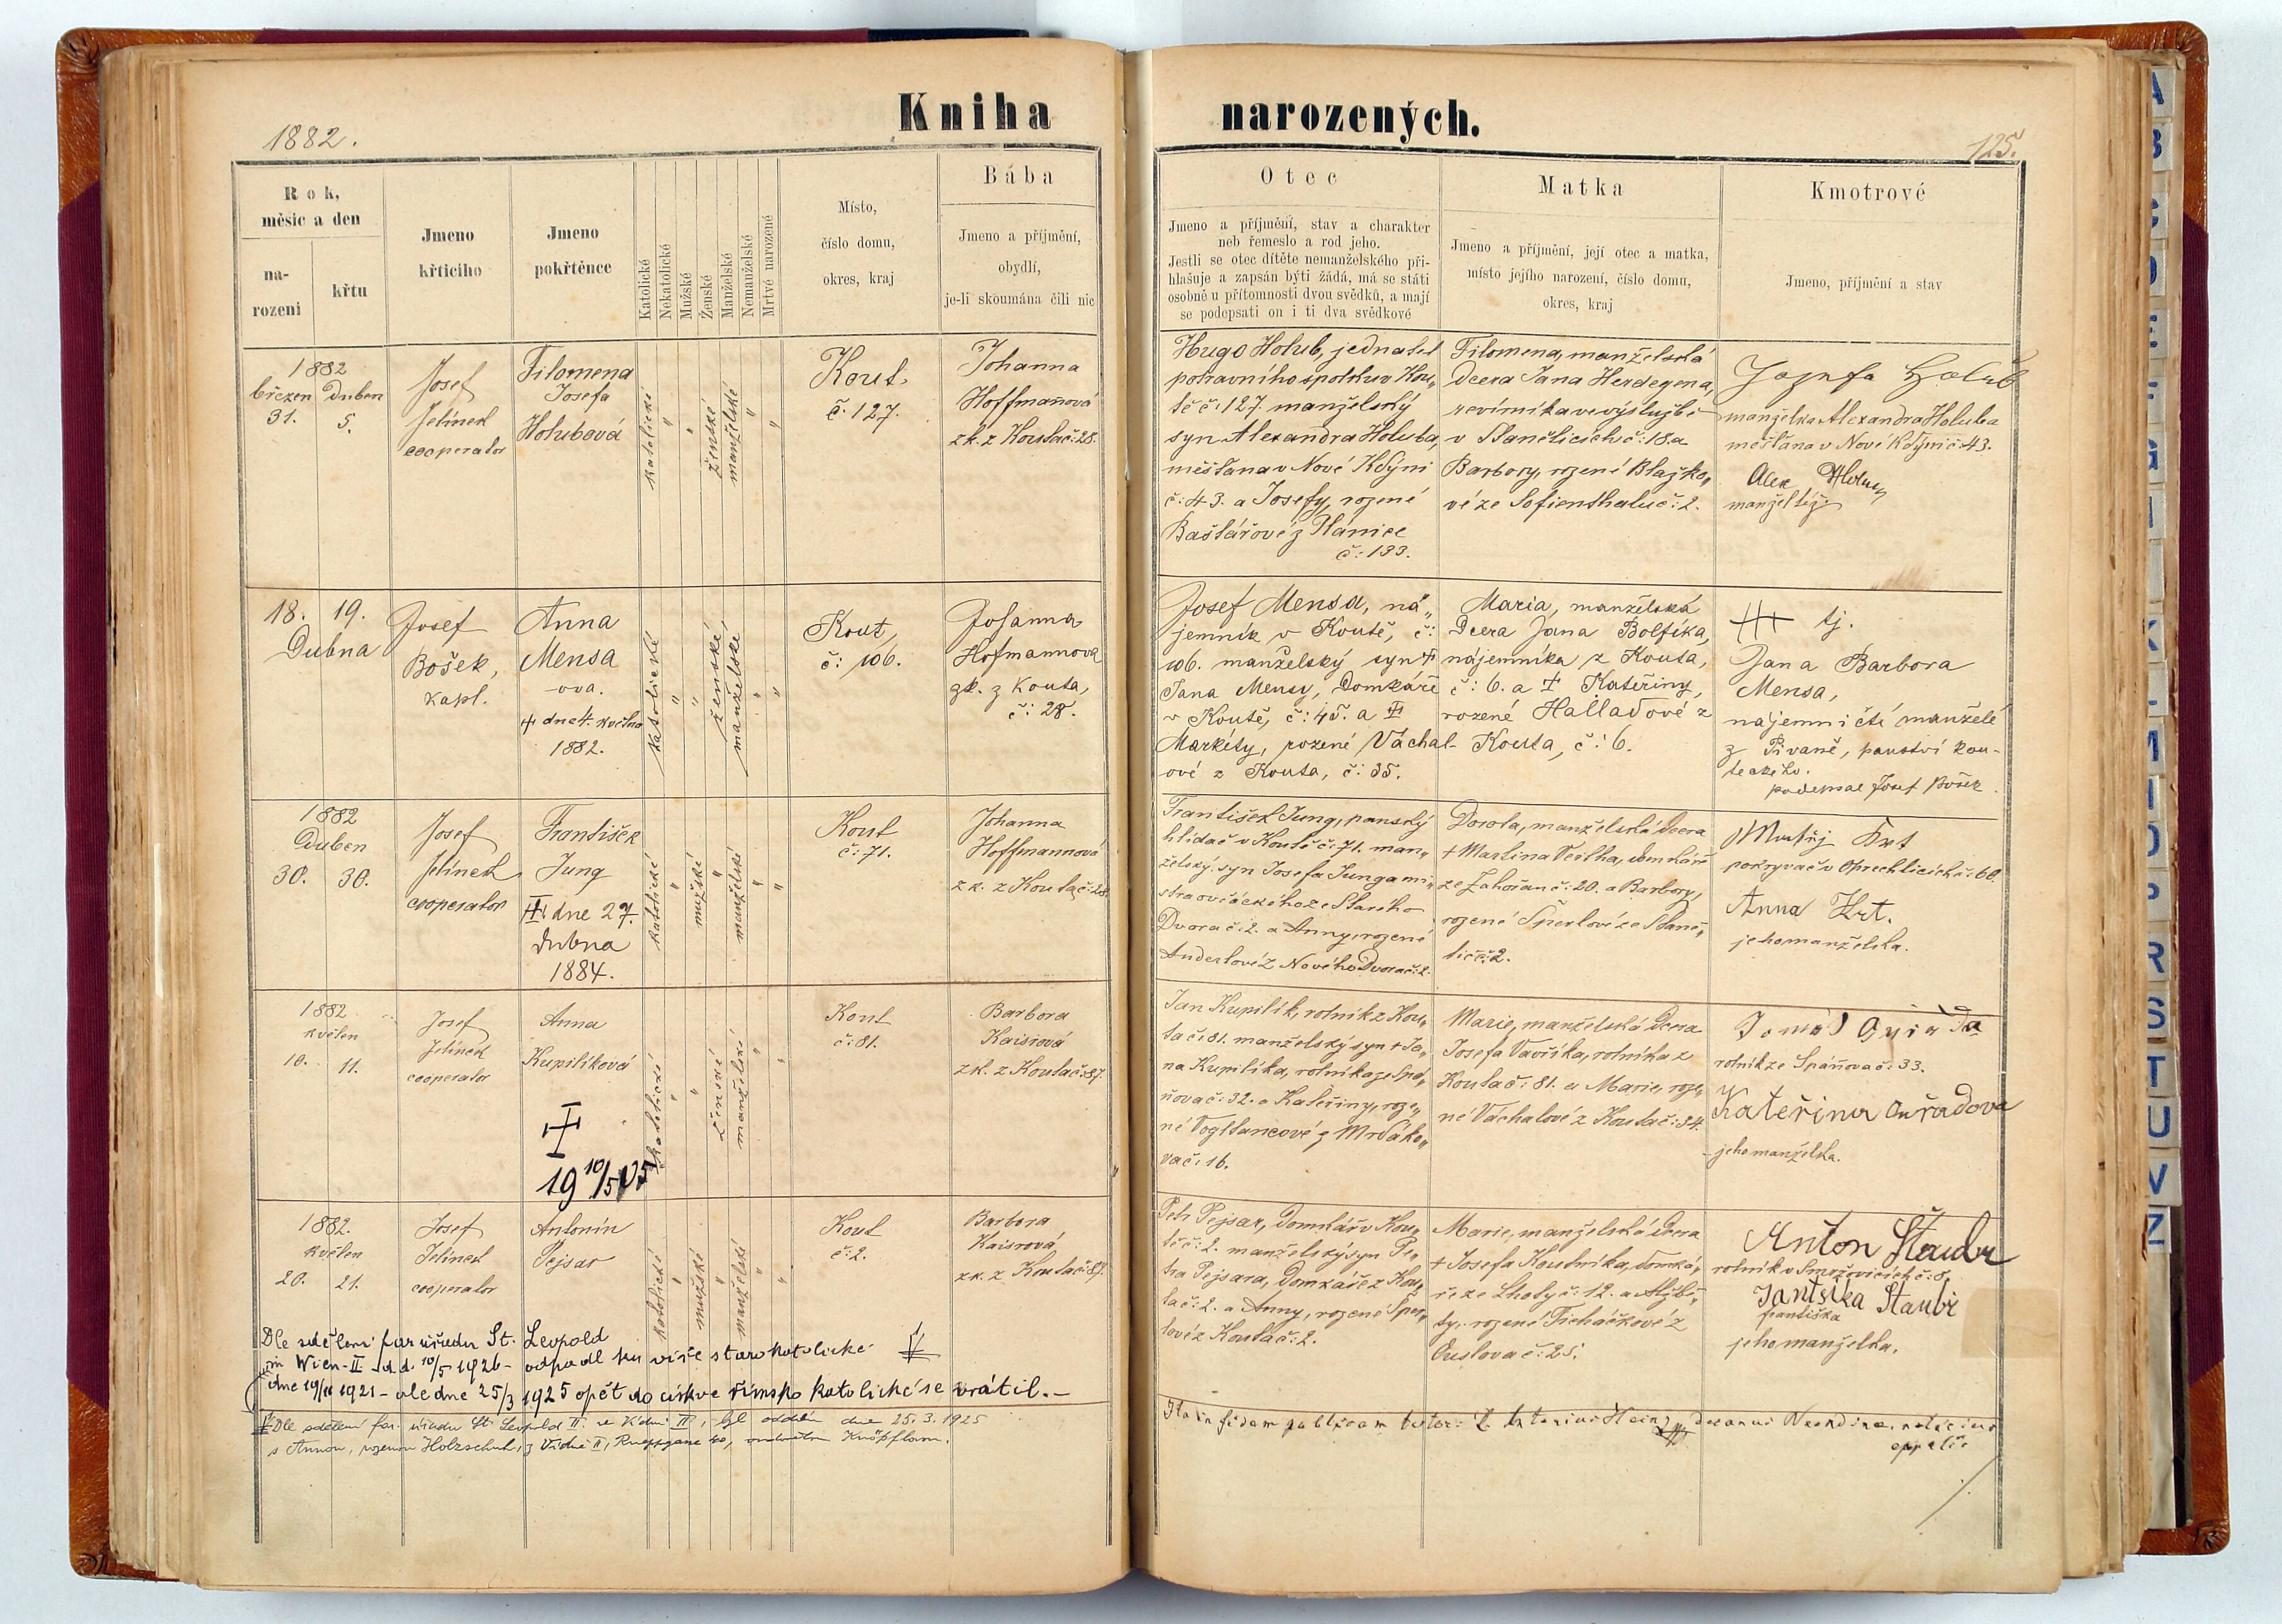 1882.
Kniha
narozených.
125.
Rok,
měsíc a den
na-
rozeni
křtu
Jmeno
křticiho
Jmeno
pokřtěnce
Katolické
Nekatolické
Mužské
Ženské
Manželské
Nemanželské
Mrtvé narozené
Místo,
číslo domu,
okres, kraj
Bába
Jmeno a příjmění,
obydlí,
je-li skoumána čili nic
Otec
Jmeno a příjmění, stav a charakter
neb řemeslo a rod jeho.
Jestli se otec dítěte nemanželského při-
hlašuje a zapsán býti žádá, má se státi
osobně u přítomnosti dvou svědků, a mají
se podepsati on i ti dva svědkové
Matka
Jmeno a příjmění, její otec a matka,
místo jejího narození, číslo domu,
okres, kraj
Kmotrové
Jmeno, příjmění a stav
1882
březen Duben
31. 5.
Josef
Jelínek
cooperator
Filomena
Josefa
Holubová
katolické
"
"
ženské
manželské
"
"
Kout
č. 127.
Johanna
Hoffmanová
zk. z Kouta č: 28.
Hugo Holub, jednatel
potravního spolku v Kou„
tě č: 127. manželský
syn Alexandra Holuba,
měšťana v Nové Kdýni
č: 43. a Josefy, rozené
Baštářové z Plánice
č: 133.
Filomena, manželská
dcera Jana Herdegena,
revírníka ve výslužbě
v Stanětících č: 18. a
Barbory, rozené Blažko„
vé ze Sofienthalu č: 2.
Jozefa Holub
manželka Alexandra Holuba
měšťana v Nové Kdýni č: 43.
Alex Holub
manžel též.
18. 19.
Dubna
Josef
Bošek,
kapl.
Anna
Mensa
ova.
+ dne 4. května
1882.
katolické
"
"
ženské,
manželské
"
"
Kout,
č: 106.
Johanna
Hofmannova
zk. z Kouta,
č: 28.
Josef Mensa, ná„
jemník v Koutě, č:
106. manželský syn +
Jana Mensy, Domkáře
v Koutě, č: 45. a +
Markéty, rozené Váchal-
ové z Kouta, č: 35.
Maria, manželská
Dcera Jana Bolfíka,
nájemníka z Kouta,
č: 6. a + Kateřiny,
rozené Halladové z
Kouta, č: 6.
+++ tj.
Jan a Barbora
Mensa,
nájemničtí manželé
z Pivaně, panství kou-
teckého.
podepsal Josef Bošek.
1882
Duben
30. 30.
Josef
Jelínek
cooperator
František
Jung
+ dne 27.
dubna
1884.
katolické
"
mužské
"
manželské
"
"
Kout
č: 71.
Johanna
Hoffmannová
zk. z Kouta č: 28.
František Jung, panský
hlídač v Koutě č: 71. man„
želský syn Josefa Junga mi„
stra ovčáckého ze Starého
Dvora č: 2. a Anny, rozené
Anderlové z Nového Dvora č: 2.
Dorota, manželská dcera
+ Martina Veitha, domkáře
ze Zahořan č: 20. a Barbory,
rozené Šperlové ze Staně„
tic č: 2.
Matěj Krt
pokryvač v Oprechticích č: 60.
Anna Krt.
jeho manželka.
1882
květen
10. 11.
Josef
Jelínek
cooperator
Anna
Kupilíková
+
19 10/5 05
katolické
"
"
ženské
manželské
"
"
Kout
č: 81.
Barbora
Kaisrová
zk. z Kouta č: 87.
Jan Kupilík, rolník z Kou„
ta č: 81. manželský syn + Ja„
na Kupilíka, rolníka ze Spá„
ňova č: 32. a Kateřiny, roze„
né Vogltancové z Mrdáko„
va č: 16.
Marie, manželská Dcera
Josefa Vavříka, rolníka z
Kouta č: 81. a Marie, roze„
né Váchalové z Kouta č: 34.
Tomáš Ouřada
rolník ze Spáňova č: 33.
Kateřina Ouřadova
jeho manželka.
1882.
květen
20. 21.
Josef
Jelínek
cooperator
Antonín
Pejsar
katolické
"
mužské
"
manželské
"
"
Kout
č: 2.
Barbora
Kaisrová
zk. z Kouta č: 87.
Petr Pejsar, Domkář v Kou„
tě č: 2. manželský syn Pe„
tra Pejsara, Domkáře z Kou„
ta č: 2. a Anny, rozené Šper„
lové z Kouta č: 2.
Marie, manželská Dcera
+ Josefa Koutníka, domká„
ře ze Lhoty č: 12. a Alžbě„
ty, rozené Ticháčkové z
Ouslova č: 25.
Anton Štaubr
rolník v Smržovicích č: 8.
Jantška Štaubr
Františka
jeho manželka.
Dle sdělení far. úřadu St. Leopold
in Wien-II d.d. 10/5 1926 - odpadl ku víře starokatolické
dne 19/11 1921 - ale dne 25/3 1925 opět do církve římsko katolické se vrátil. -
Dle sdělení far. úřadu St. Leopold II. ve Vídni II, byl oddán dne 25. 3. 1925
s Annou, rozenou Holzschuh, z Vídně II,